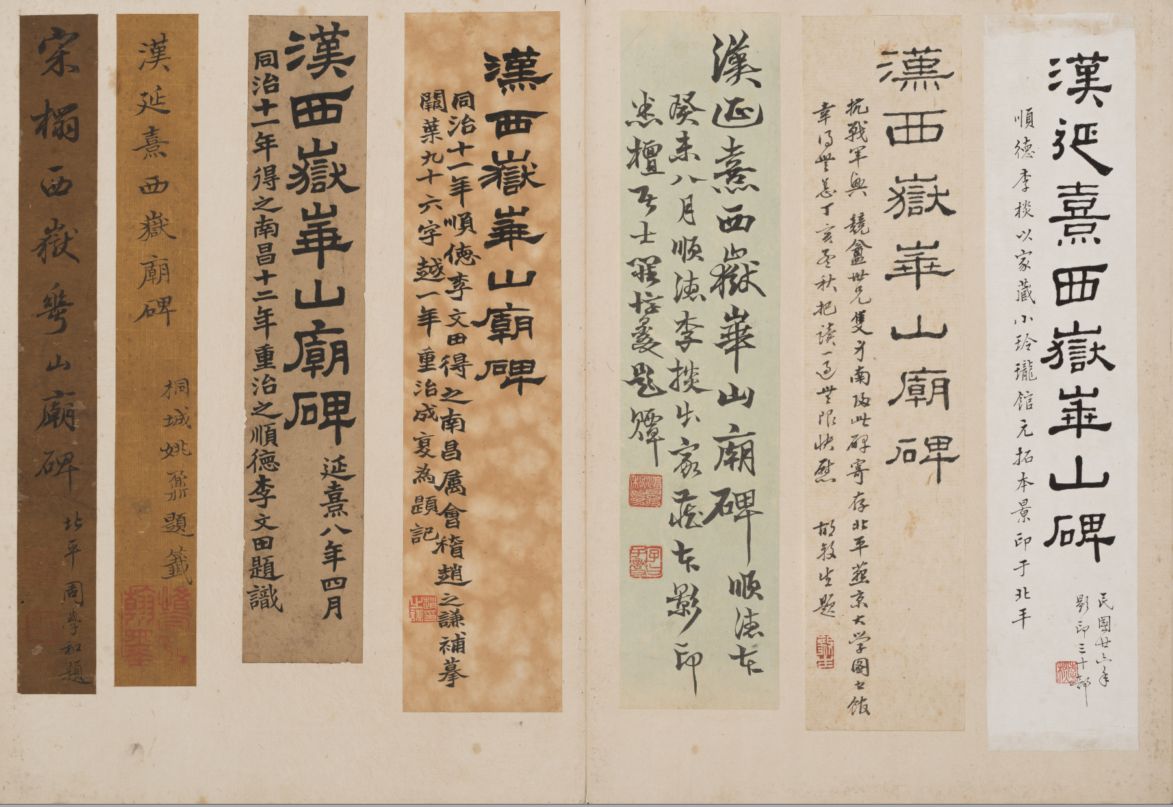 漢延熹西嶽華山碑
順德李棪以家藏小玲瓏館元拓本景印于北平
民國廿六年
影印三十部
漢西嶽華山廟碑
抗戰軍興 競盦世兄隻身南歸此碑寄存北平燕京大学圖書館
幸得無恙丁亥孟秋把讀一過無限快慰 胡毅生題
漢延熹西嶽華山廟碑 順德本
癸未八月順德李棪出家藏本影印
悉檀居士羅惇㬊題籤
漢西嶽華山廟碑
同治十一年順德李文田得之南昌屬會稽趙之謙補摹
闕葉九十六字越一年重治成复為題記
漢西嶽華山廟碑 延熹八年四月
同治十一年得之南昌十二年重治之順德李文田題識
漢延熹西嶽廟碑
桐城姚鼐題籤
宋搨西嶽華山廟碑
北平周學和題